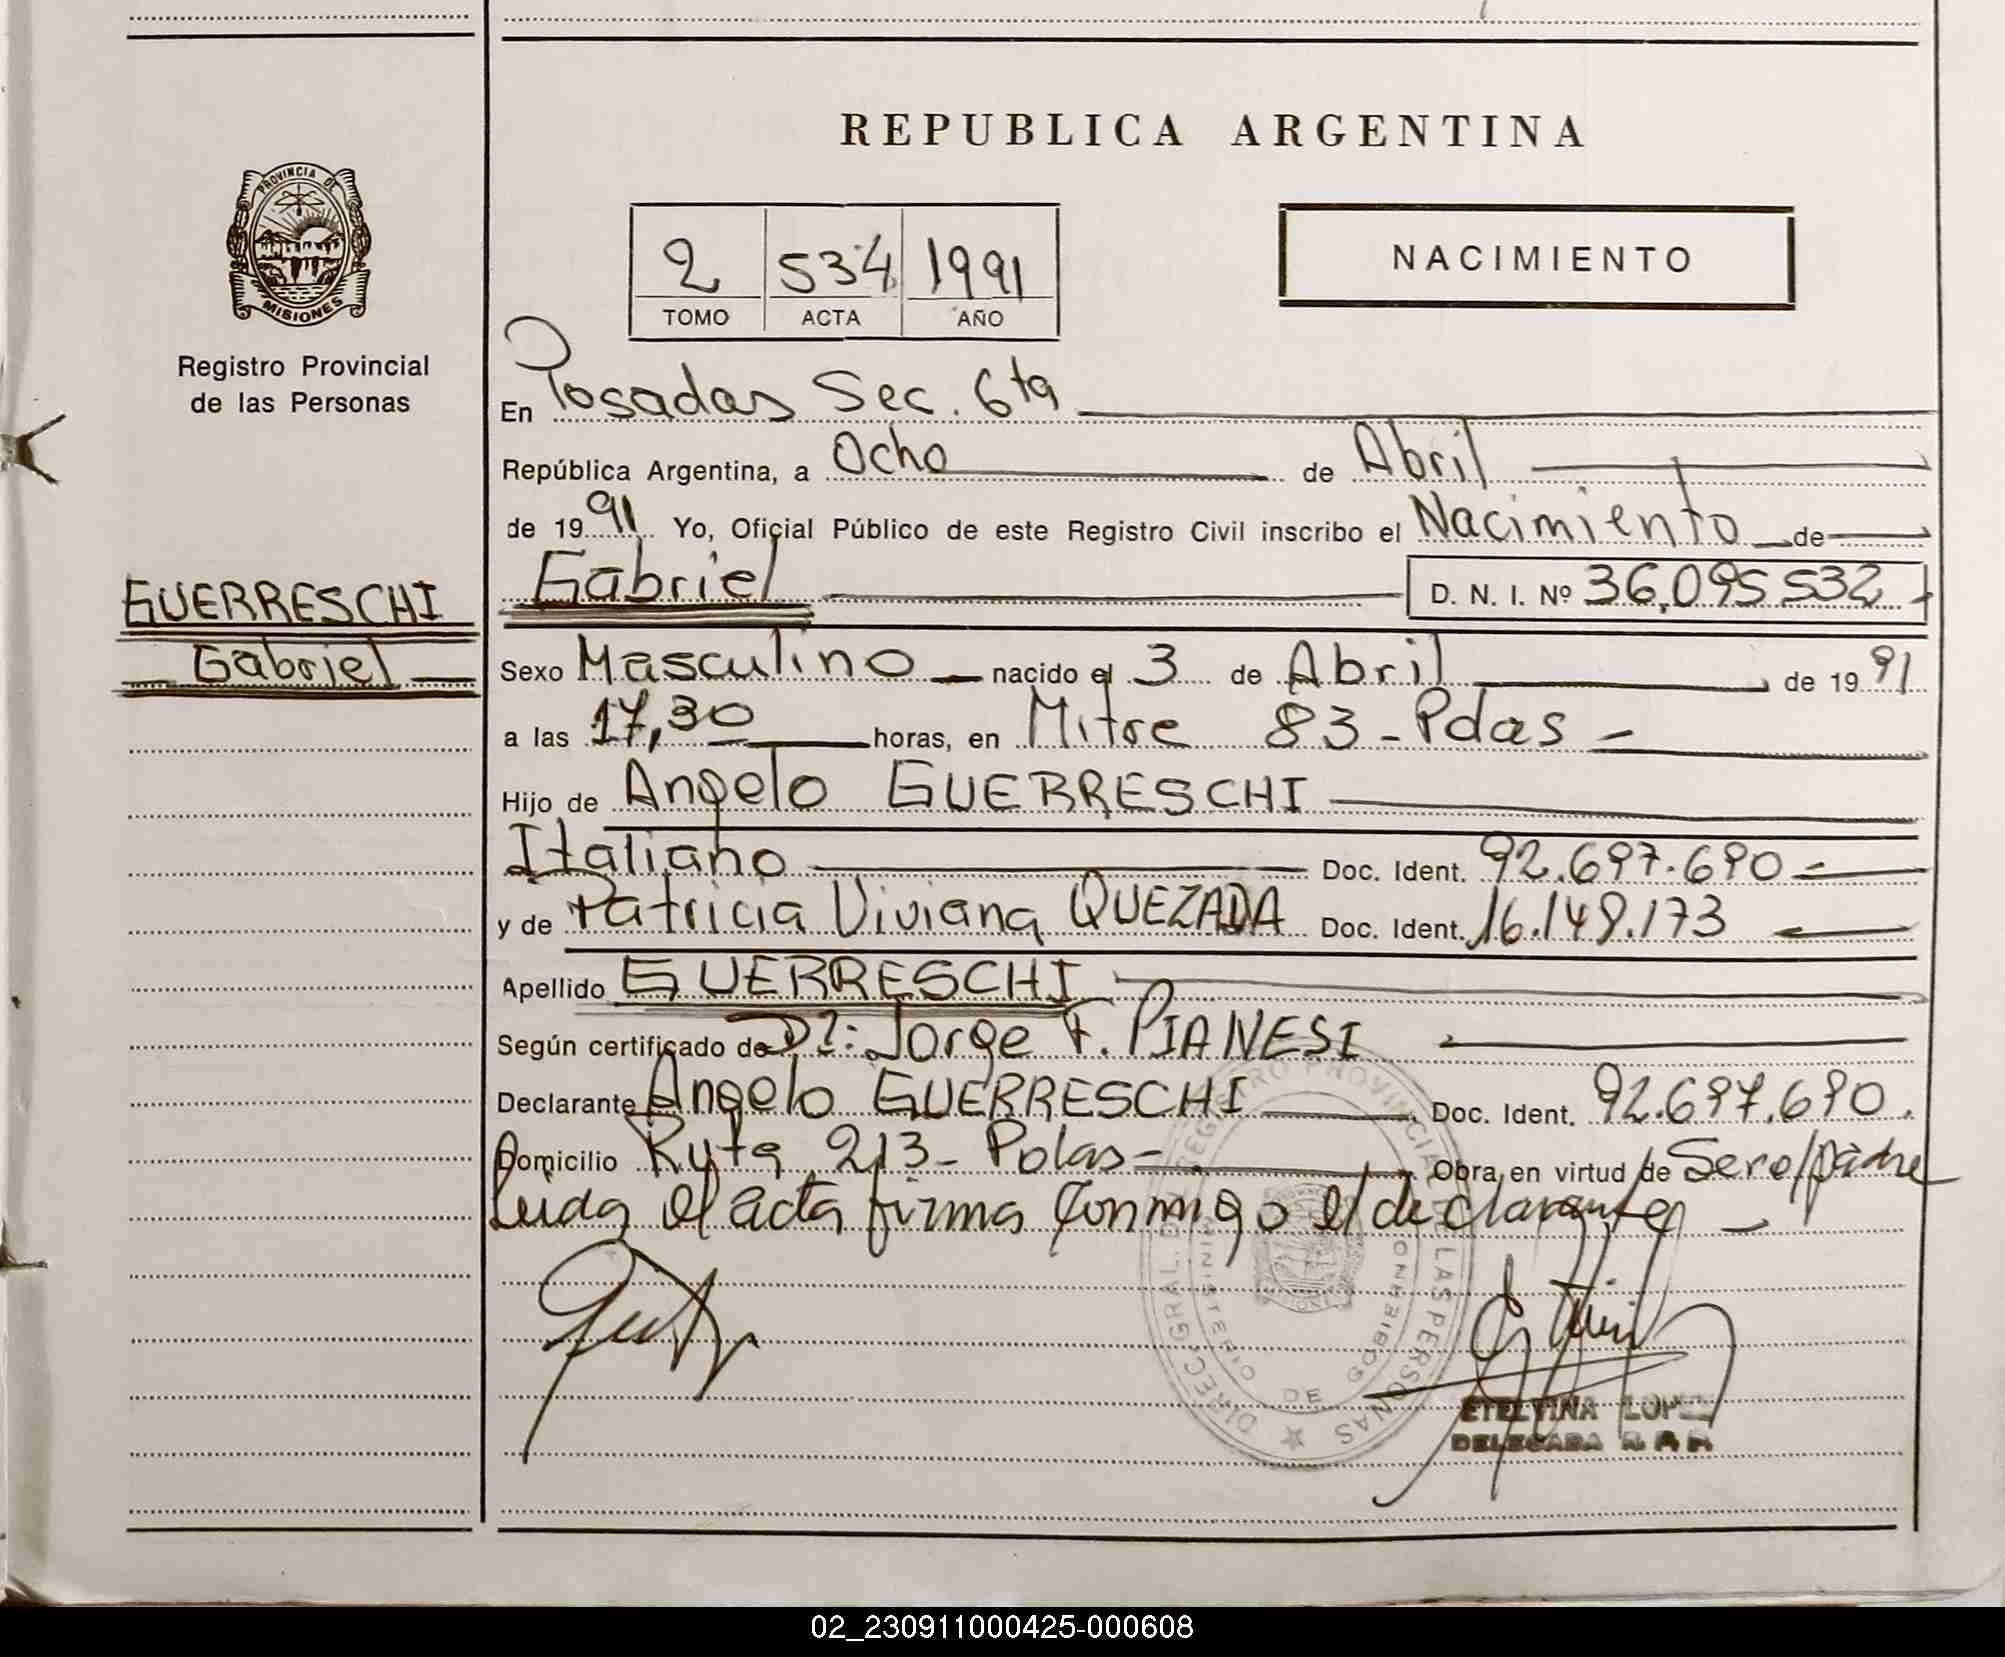 REPUBLICA ARGENTINA
PROVINCIA DE
MISIONES
Registro Provincial
de las Personas
2 534 1991
TOMO ACTA AÑO
NACIMIENTO
En Posadas Sec. 6ta
República Argentina, a Ocho de Abril
de 1991 Yo, Oficial Público de este Registro Civil inscribo el Nacimiento de
GUERRESCHI
Gabriel
Gabriel D. N. I. Nº 36,095 532
Sexo Masculino nacido el 3 de Abril de 1991
a las 17,30 horas, en Mitre 83 - Pdas -
Hijo de Angelo GUERRESCHI
Italiano Doc. Ident. 92.697.690
y de Patricia Viviana QUEZADA Doc. Ident. 16.149.173
Apellido GUERRESCHI
Según certificado de Dr: Jorge F. PIANESI
Declarante Angelo GUERRESCHI Doc. Ident. 92.697.690.
Domicilio Ruta 213 - Pdas - Obra en virtud de Ser el padre
Leida el acta firma conmigo el declarante
DIREC. GRAL. DEL REGISTRO PROVINCIAL DE LAS PERSONAS
MINISTERIO DE GOBIERNO
ETELVINA LOPEZ
DELEGADA R. P. P.
02_230911000425-000608